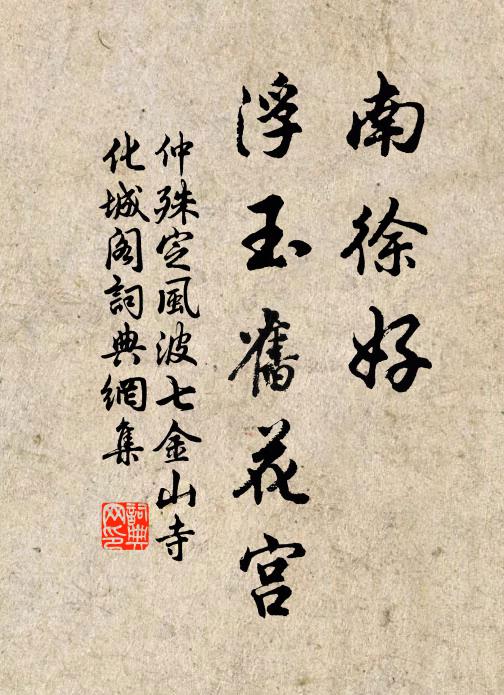 南徐好
浮玉舊花宮
仲殊定風波七金山寺
化城閣詞典網集
詞典網印